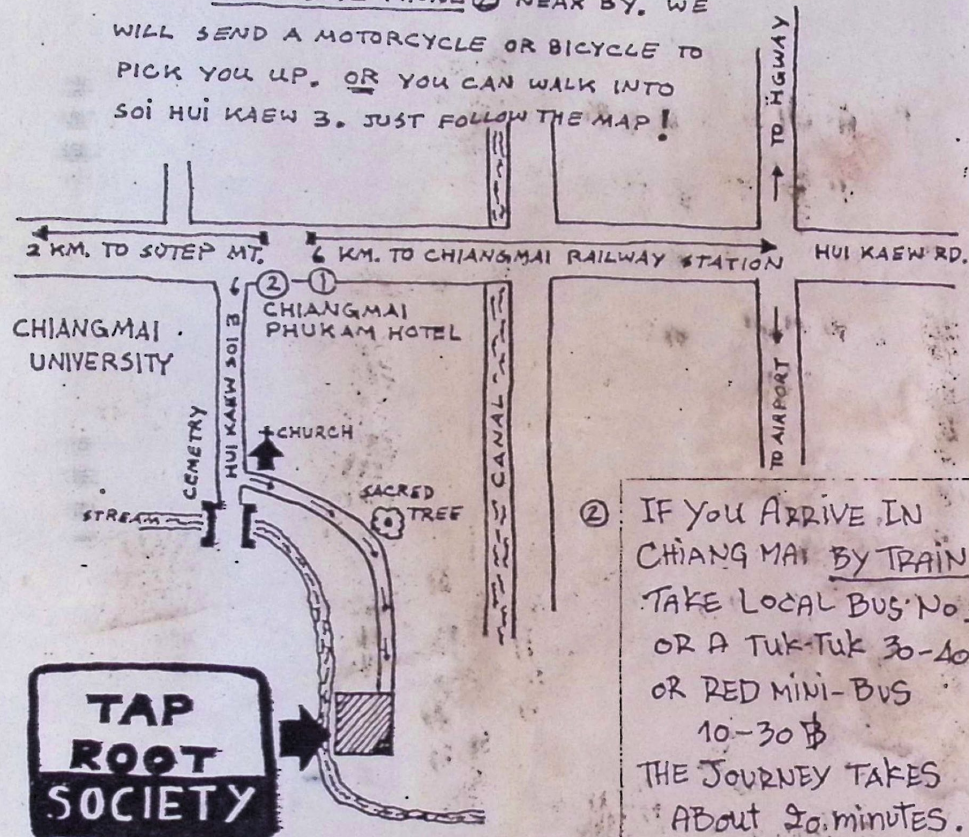 NEAR BY. WE
WILL SEND A MOTORCYCLE OR BICYCLE TO
PICK YOU UP. OR YOU CAN WALK INTO
SOi HUi KAEW 3. JUST FOLLOW THE MAP!
TO HGWAY
2 KM. TO SUTEP MT.
6 KM. TO CHIANGMAI RAILWAY STATION
HUI KAEW RD.
② ①
CHIANGMAI
PHUKAM HOTEL
CHIANGMAI
UNIVERSITY
HUI KAEW SOI 3
CEMETRY
CHURCH
CANAL
TO AIRPORT
SACRED
TREE
STREAM
② IF YOU ARRIVE IN
CHIANG MAI BY TRAIN
TAKE LOCAL BUS NO.
OR A TUK-TUK 30-40
OR RED MINI-BUS
10-30 ฿
THE JOURNEY TAKES
ABout 20 minutes.
TAP
ROOT
SOCIETY